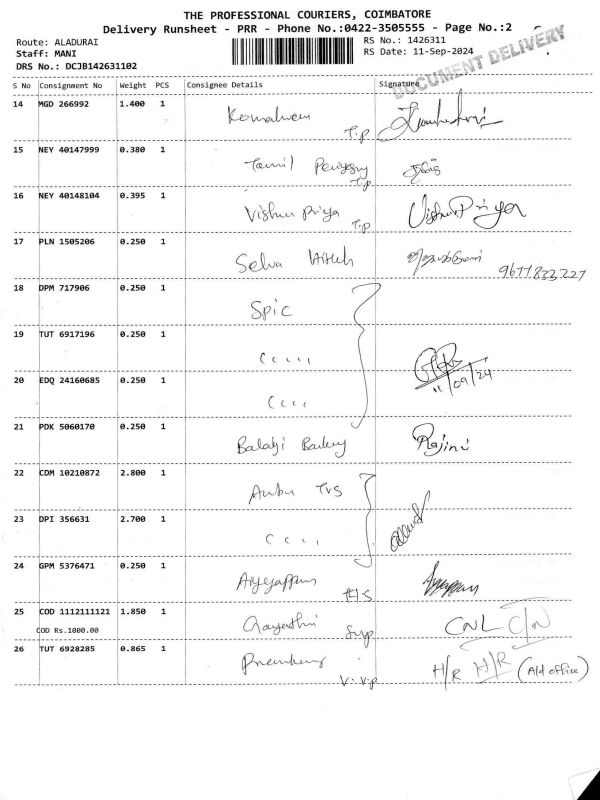 THE PROFESSIONAL COURIERS, COIMBATORE
Delivery Runsheet - PRR - Phone No.:0422-3505555 - Page No.:2
Route: ALADURAI
RS No.: 1426311
Staff: MANI
RS Date: 11-Sep-2024
DRS No.: DCJB142631102
DOCUMENT DELIVERY
S No Consignment No Weight PCS Consignee Details Signature
14 MGD 266992 1.400 1
T.p
15 NEY 40147999 0.380 1 Tamil
T.p
16 NEY 40148104 0.395 1 Vishnu Priya Vishnu Priya
T.p
17 PLN 1505206 0.250 1 Selva
9677833227
18 DPM 717906 0.250 1 Spic
19 TUT 6917196 0.250 1 ‹ ‹ ‹ ‹ ‹
11/09/24
20 EDQ 24160685 0.250 1 ‹ ‹ ‹ ‹
21 PDK 5060170 0.250 1 Balaji Rajini
22 CDM 10210872 2.800 1 Anbu TVS
23 DPI 356631 2.700 1 ‹ ‹ ‹ ‹
24 GPM 5376471 0.250 1
25 COD 1112111121 1.850 1 Gayathri CNL C/N
COD Rs.1000.00
26 TUT 6928285 0.865 1 H/R H/R (Ald office)
V.V.P